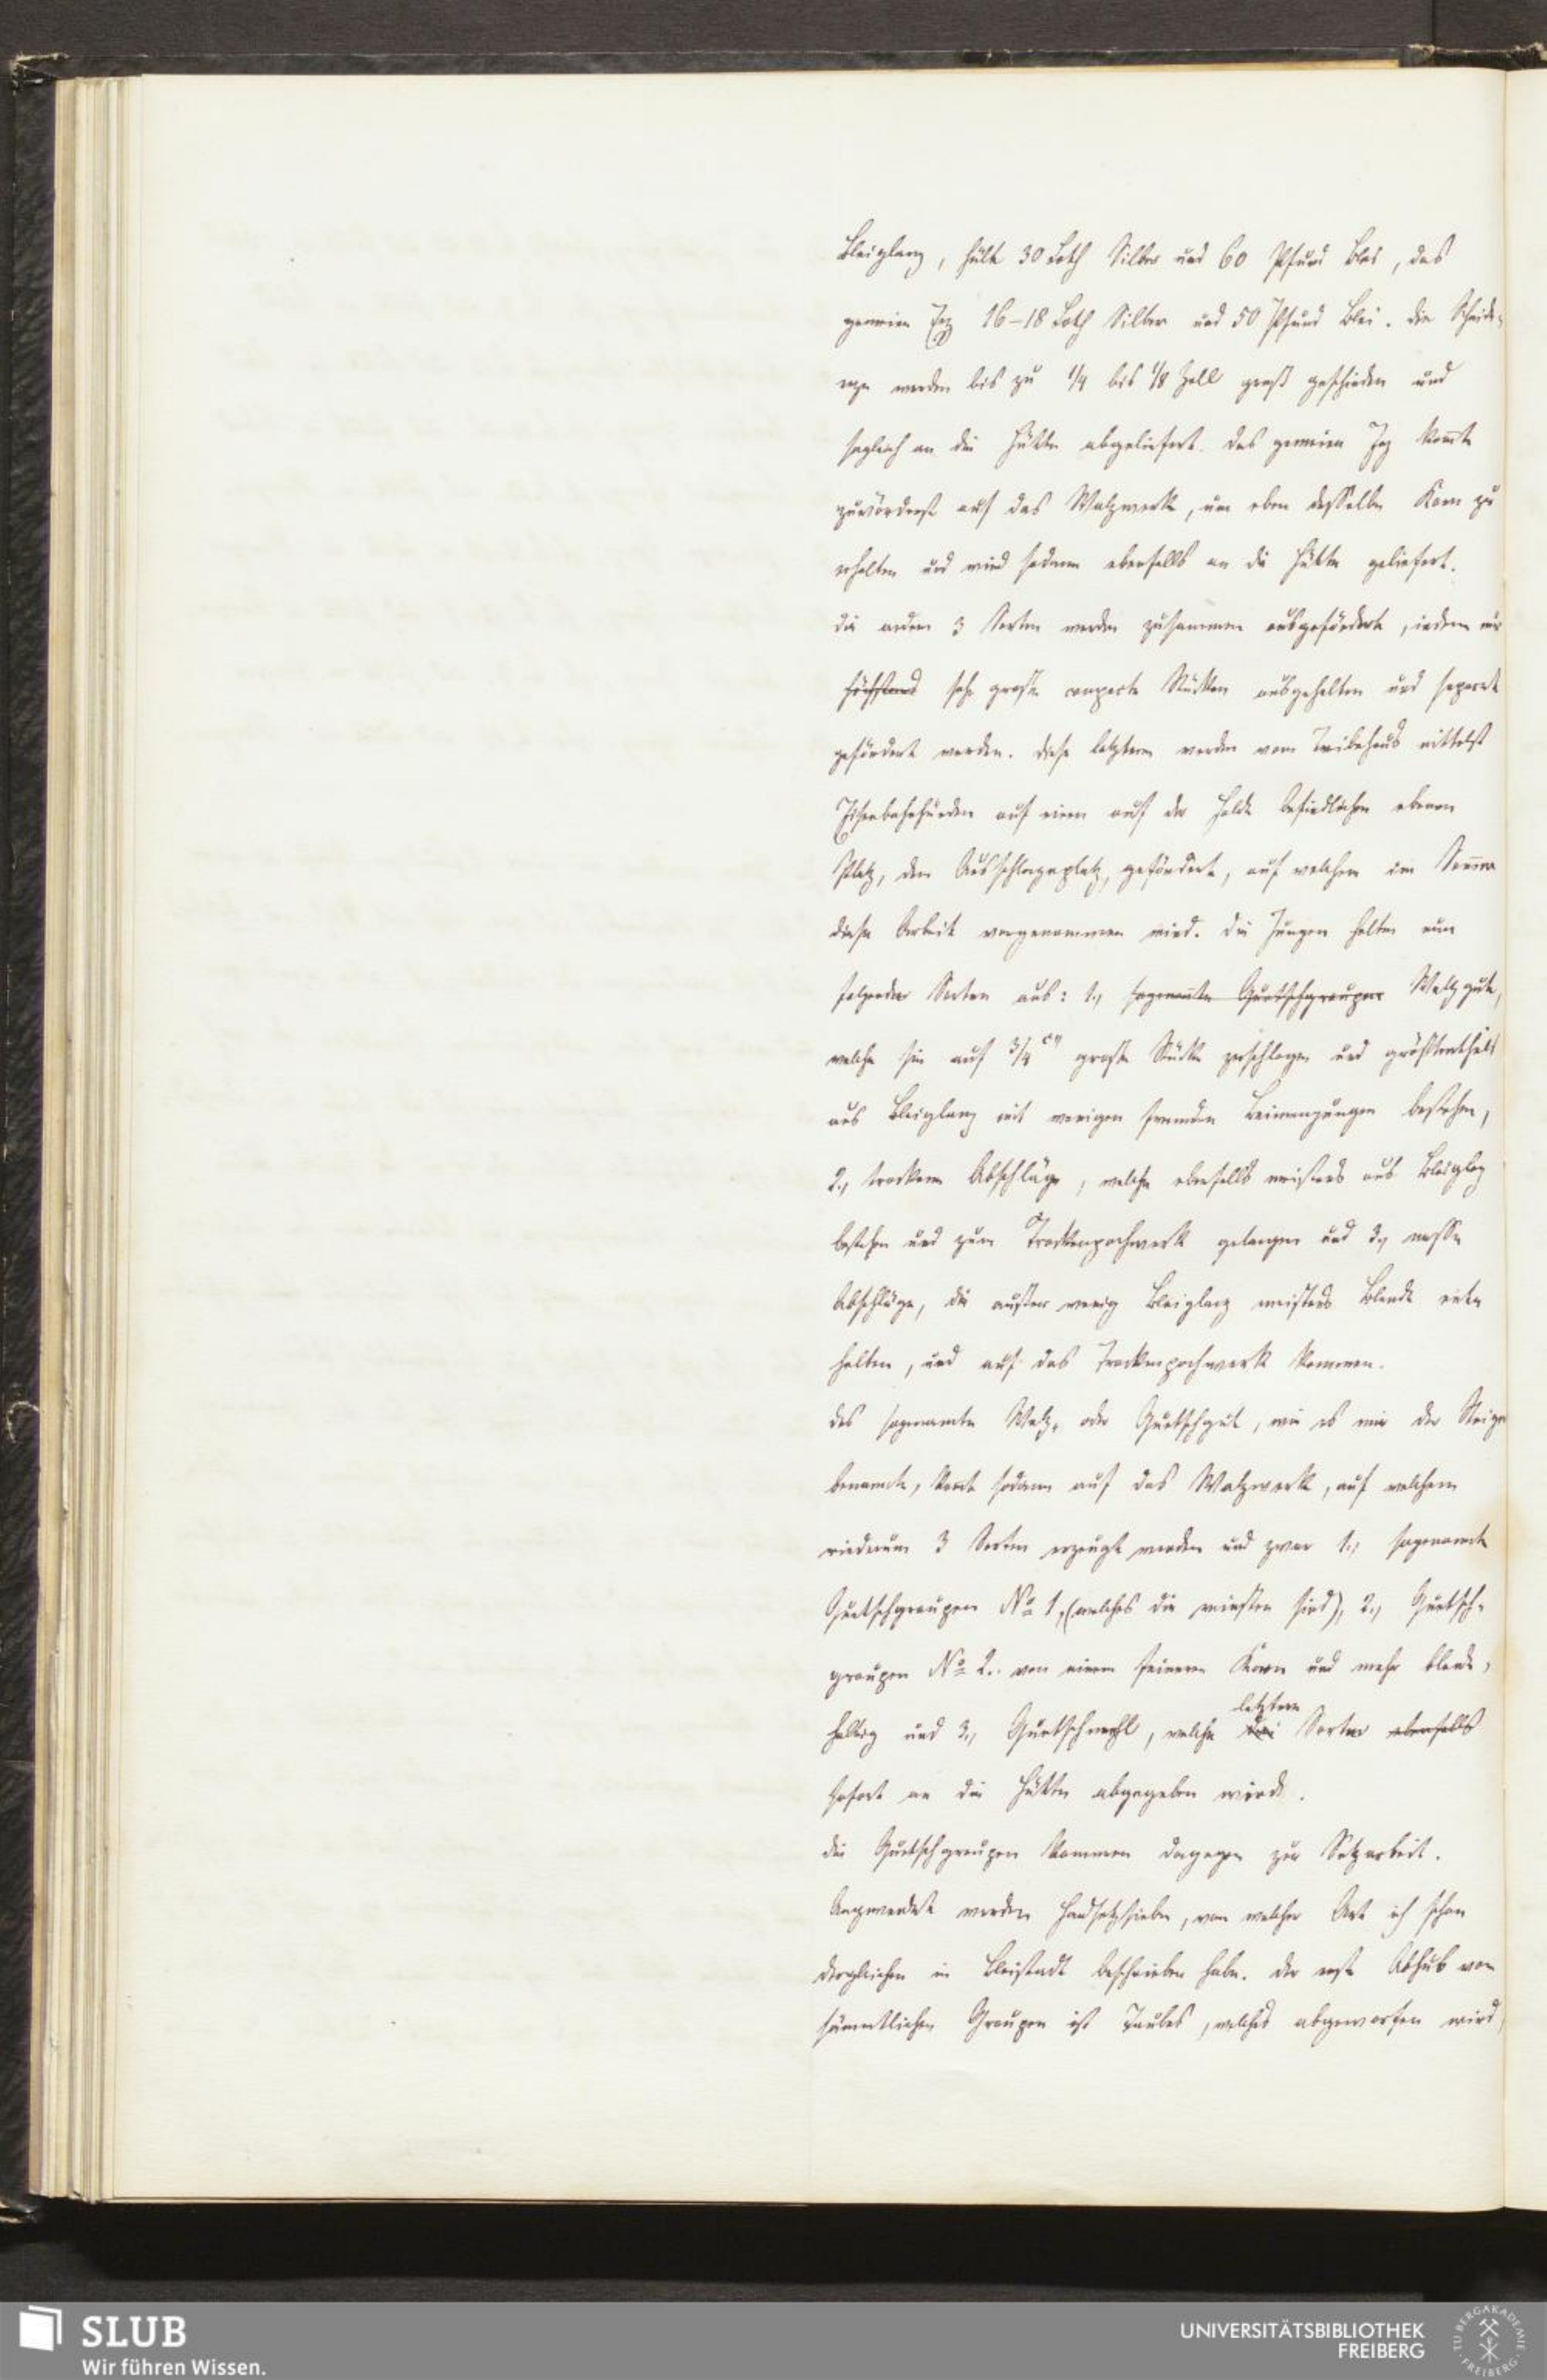 Bleiglanz, hält 30 Loth Silber und 60 Pfund Blei, das
gemeine Erz 16–18 Loth Silber und 50 Pfund Blei. die Scheide-
erze werden bis zu 1/4 bis 1/8 Zoll groß geschieden und
sogleich an die Hütte abgeliefert. das gemeine Erz komt
zuvörderst auf das Walzwerk, um eben desselbe Korn zu
erhalten und wird sodann ebenfalls an die Hütte geliefert.
die andern 3 Sorten werden zusammen ausgefördert, indem nur
höchstens sehr große compacte Stücken ausgehalten und separat
gefördert werden. diese letztern werden vom Treibehaus mittelst
Eisenbahnhunden auf einen auf der Halde befindlichen ebenen
Platz, den Ausschlageplatz, gefördert, auf welchem im Sommer
diese Arbeit vorgenommen wird. die Jungen halten nun
folgende Sorten aus: 1., sogenannte Quetschgraupen Walzgute,
welche sie auf 3/4 große Stücke zerschlagen und größtentheils
aus Bleiglanz mit wenigen fremden Beimengungen bestehen,
2., trockene Abschläge, welche ebenfalls meistens aus Bleiglanz
bestehen und zum Trockenpochwerk gelangen und 3., nasse
Abschläge, die außer wenig Bleiglanz meistens Blende ent
halten, und auf das Trockenpochwerk kommen.
das sogenannte Walz- oder Quetschgut, wie es mir der Steiger
benannte, komt sodann auf das Walzwerk, auf welchem
wiederum 3 Sorten erzeugt werden und zwar 1., sogenannte
Quetschgraupen No 1, (welches die meisten sind), 2., Quetsch-
graupen No 2. von einem feineren Korn und mehr blende-
haltig und 3., Quetschmehl, welche
letztere
Sorte ebenfalls
sofort an die Hütte abgegeben wird.
die Quetschgraupen kommen dagegen zur Setzarbeit.
Angewendet werden Handsetzsiebe, von welcher Art ich schon
dergleichen in Bleistadt beschrieben habe. der erste Abhub von
sämmtlichen Graupen ist Taubes, welches abgeworfen wird,
SLUB
Wir führen Wissen.
UNIVERSITÄTSBIBLIOTHEK
FREIBERG
TU BERGAKADEMIE
FREIBERG